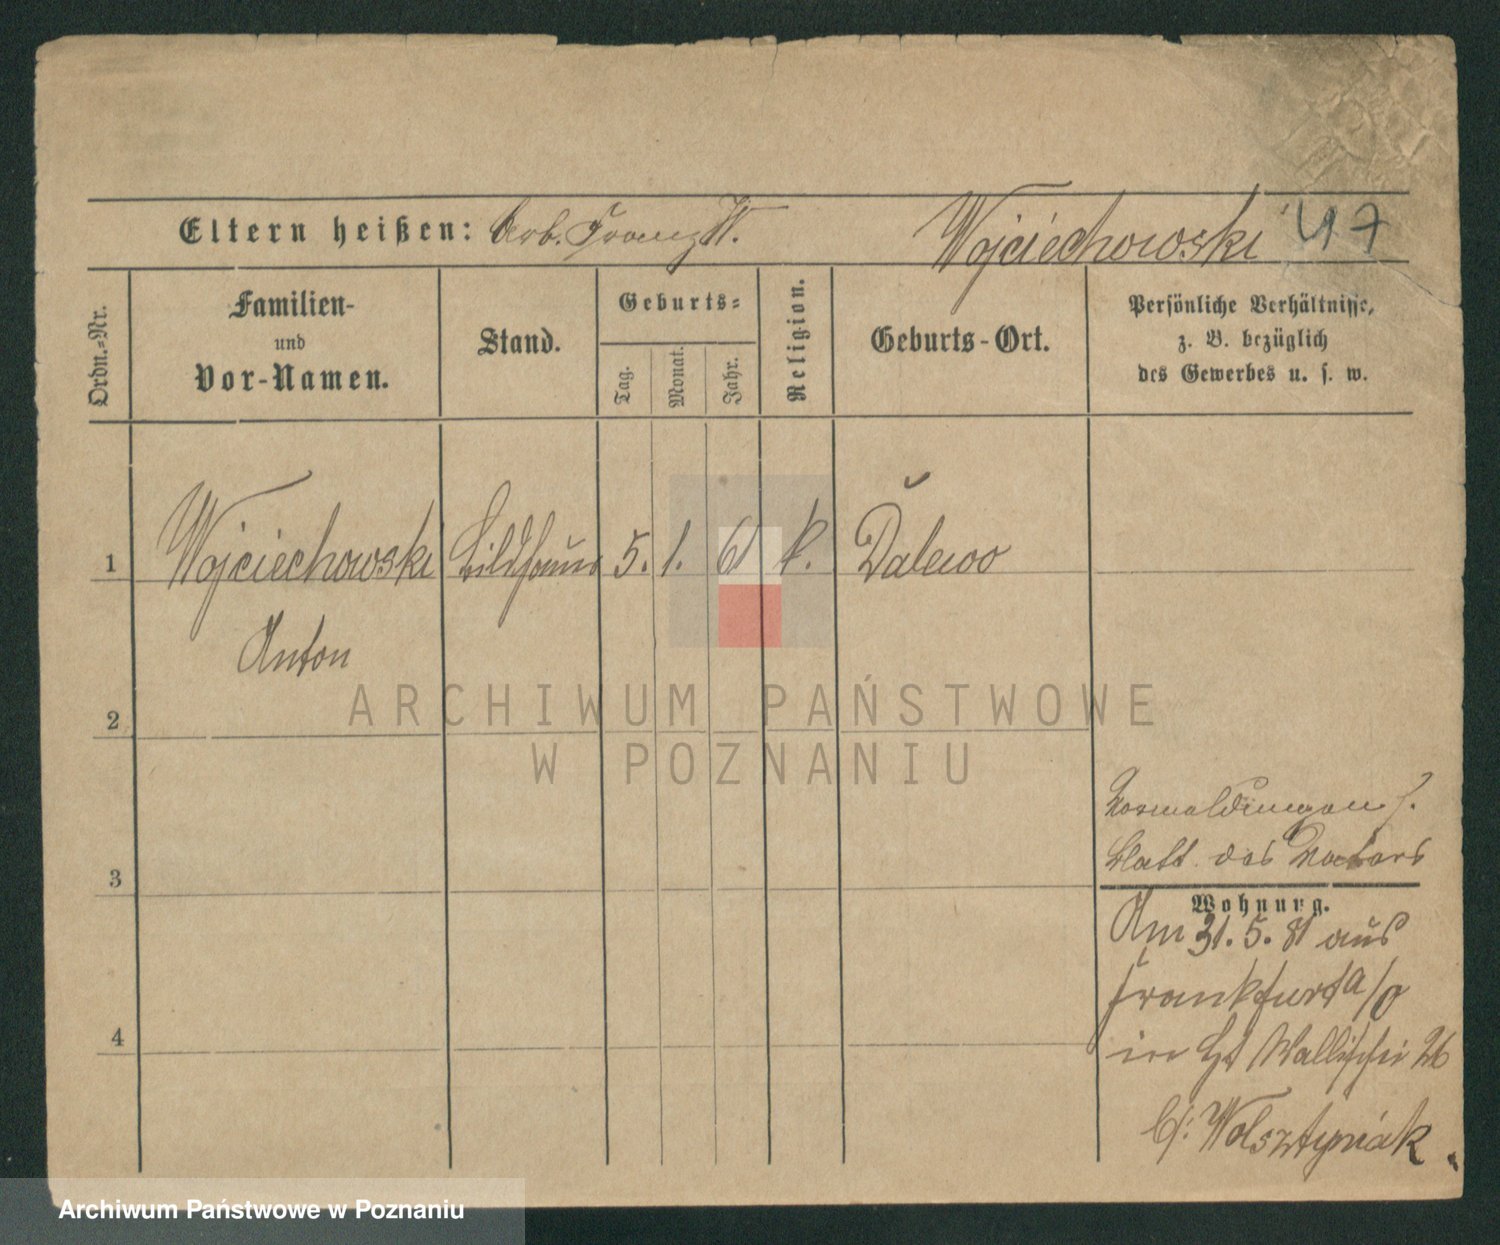 Eltern heißen: Arb. Franz W. Wojciechowski 47
Ordn.-Nr.
Familien-
und
Vor-Namen.
Stand.
Geburts-
Tag.
Monat.
Jahr.
Religion.
Geburts-Ort.
Persönliche Verhältnisse,
z. B. bezüglich
des Gewerbes u. s. w.
1 Wojciechowski Bildhauer 5. 1. 61 k. Dalewo
Anton
2
3
4
Vormeldungen s.
Blatt des Vaters
Wohnung.
Am 31. 5. 81 aus
Frankfurt a/O
in Wallischei 26
b/: Wolsztyniak.
ARCHIWUM PAŃSTWOWE
W POZNANIU
Archiwum Państwowe w Poznaniu